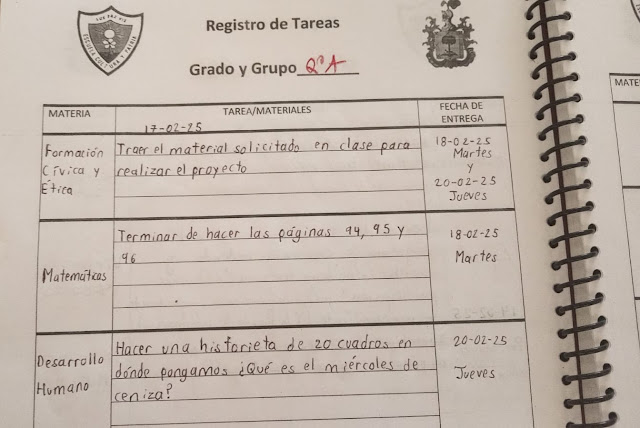 LUX PAX VIS
ESCUELA CULTURA Y PATRIA
Registro de Tareas
Grado y Grupo 2°A
MATERIA
TAREA/MATERIALES
FECHA DE
ENTREGA
17-02-25
Formación
Cívica y
Ética
Traer el material solicitado en clase para
realizar el proyecto
18-02-25
Martes
y
20-02-25
Jueves
Matemáticas
Terminar de hacer las páginas 94, 95 y
96
18-02-25
Martes
Desarrollo
Humano
Hacer una historieta de 20 cuadros en
dónde pongamos ¿Qué es el miércoles de
ceniza?
20-02-25
Jueves
MATE